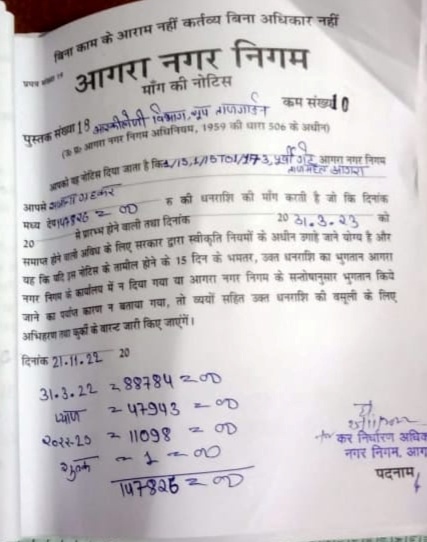 बिना काम के आराम नहीं कर्तव्य बिना अधिकार नहीं
आगरा नगर निगम
माँग की नोटिस
पुस्तक संख्या 18 क्रम संख्या 10
(उ० प्र० आगरा नगर निगम अधिनियम, 1959 की धारा 506 के अधीन)
आपको यह नोटिस दिया जाता है कि आगरा नगर निगम
ताजमहल आगरा
आपसे रु की धनराशि की माँग करती है जो कि दिनांक
मध्य देय 147826 = 00 20 31.3.23 को
20 से प्रारम्भ होने वाली तथा दिनांक
समाप्त होने वाली अवधि के लिए सरकार द्वारा स्वीकृति नियमों के अधीन उगाहे जाने योग्य है और
यह कि यदि इस नोटिस के तामील होने के 15 दिन के भमतर, उक्त धनराशि का भुगतान आगरा
नगर निगम के कार्यालय में न दिया गया या आगरा नगर निगम के सन्तोषानुसार भुगतान किये
जाने का पर्याप्त कारण न बताया गया, तो व्ययों सहित उक्त धनराशि की वसूली के लिए
अभिहरण तथा कुर्की के वारन्ट जारी किए जाएंगें।
दिनांक 21.11.22 20
31.3.22 = 88784 = 00
ब्याज = 47943 = 00
= 11098 = 00
शुल्क = 1 = 00
147826 = 00
कर निर्धारण अधिक
नगर निगम, आग
पदनाम